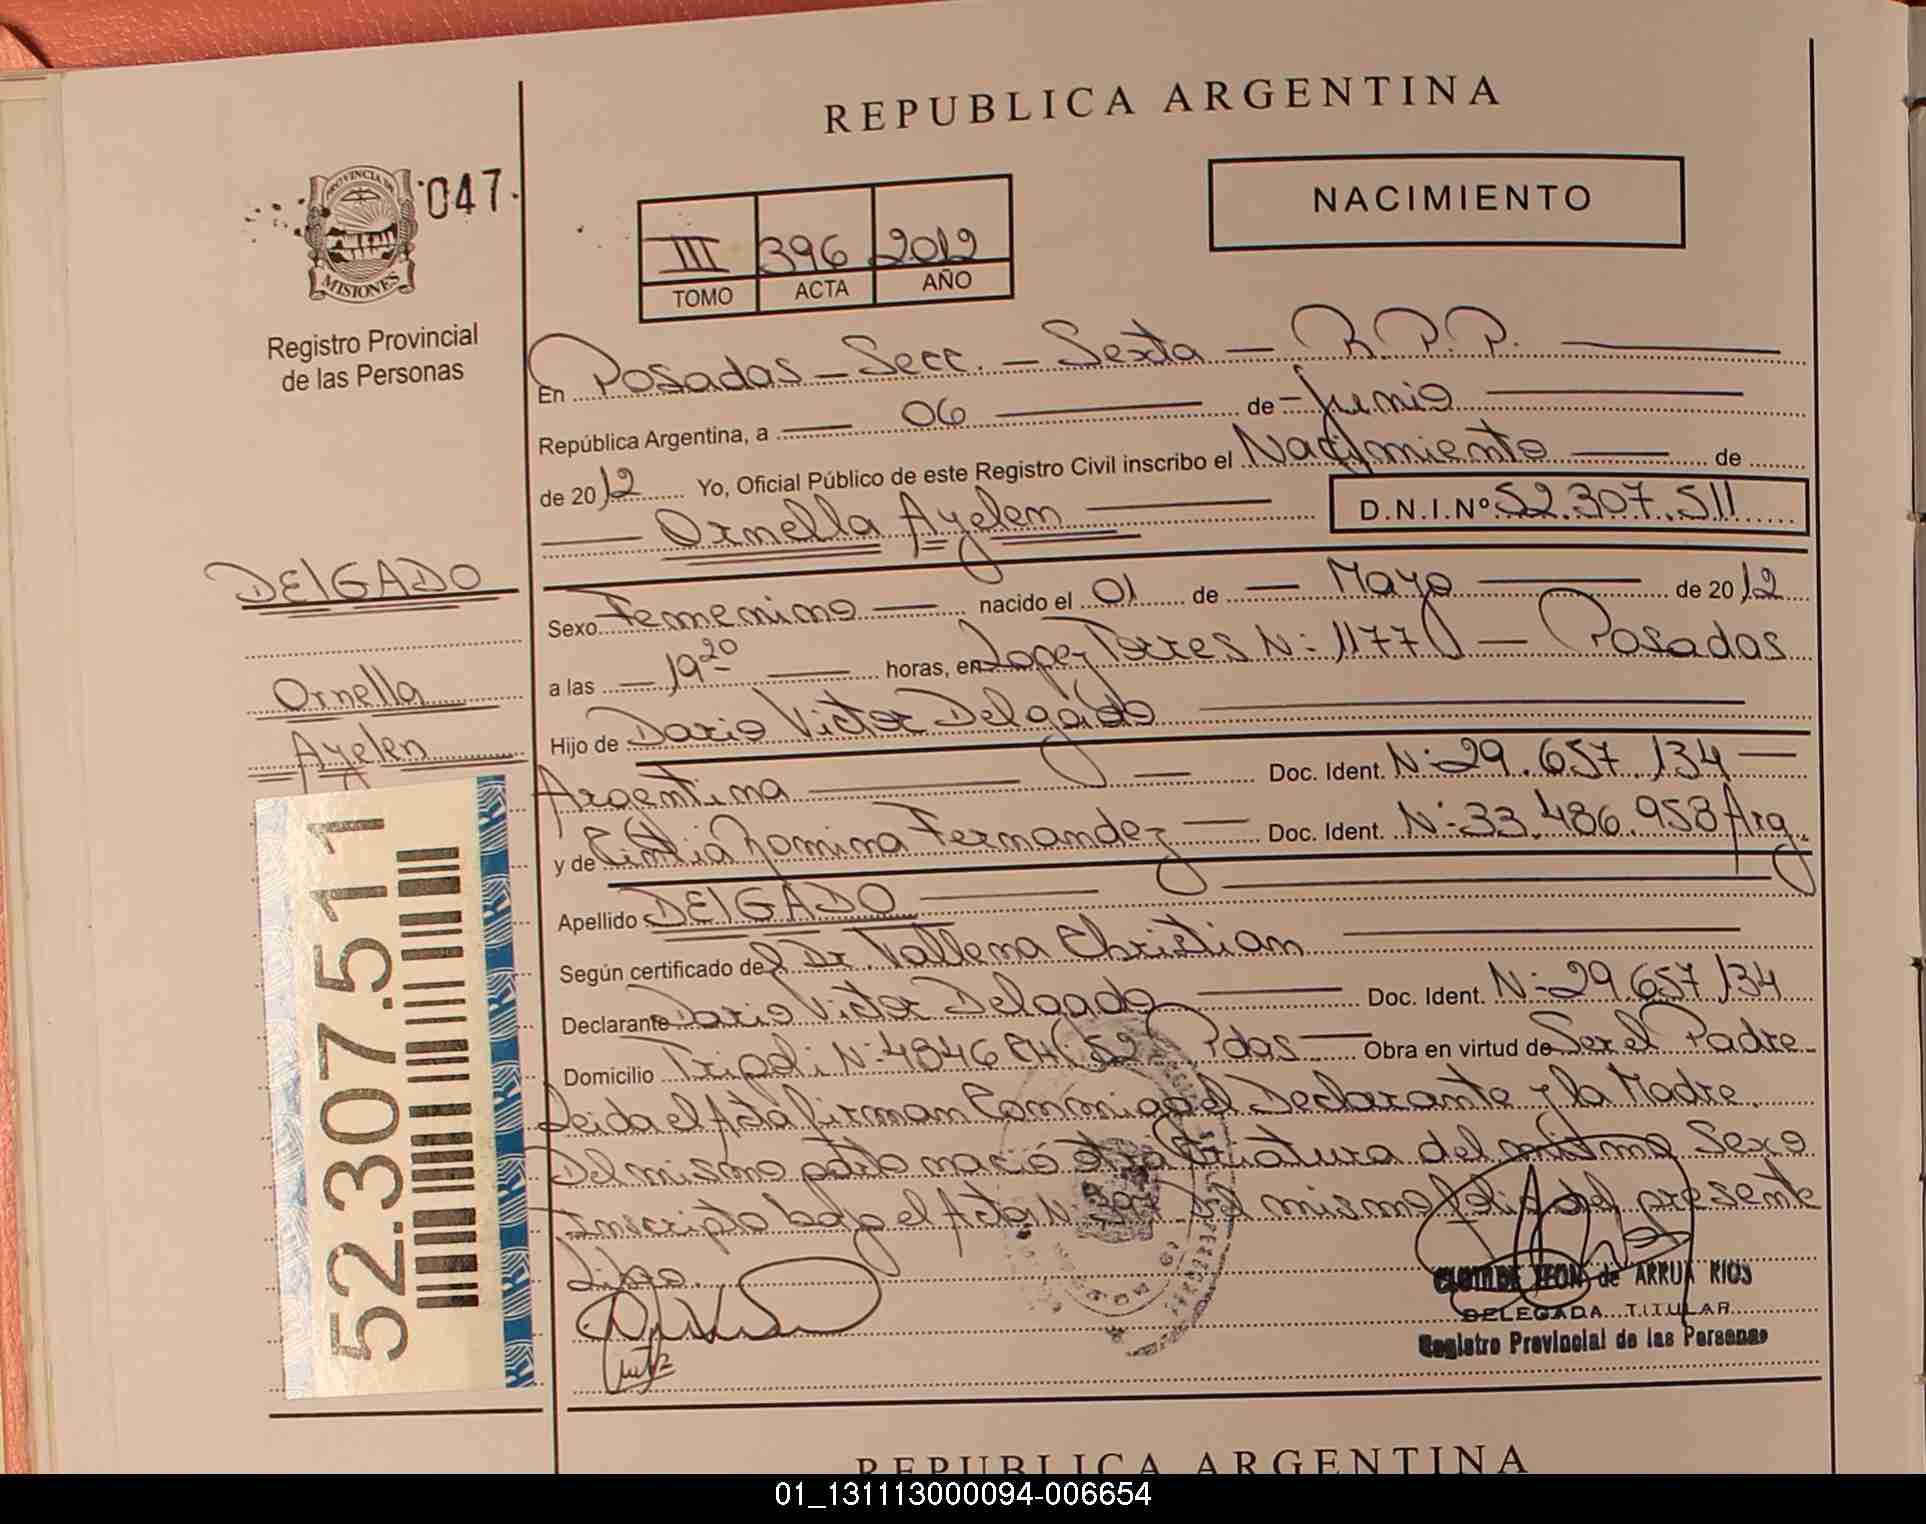 REPUBLICA ARGENTINA
047
PROVINCIA DE
MISIONES
Registro Provincial
de las Personas
NACIMIENTO
III 396 2012
TOMO ACTA AÑO
En Posadas - Secc. - Sexta - R.P.P.
República Argentina, a 06 de Junio
de 2012 Yo, Oficial Público de este Registro Civil inscribo el Nacimiento de
Ornella Ayelen D.N.I.Nº 52.307.511
DElGADO
Ornella
Ayelen
52.307.511
Sexo Femenino nacido el 01 de Mayo de 2012
a las 19 20 horas, en Lopez Torres N: 1177 - Posadas
Hijo de Dario Victor Delgado
Argentina Doc. Ident. N: 29.657.134
y de Cintia Romina Fernandez Doc. Ident. N: 33.486.958 Arg.
Apellido DElGADO
Según certificado del Dr. Christian
Declarante Dario Victor Delgado Doc. Ident. N: 29.657.134
Domicilio Tripoli N: 4846 CH 52 Pdas Obra en virtud de Ser el Padre
Leida el Acta firman Conmigo el Declarante y la Madre.
Del mismo parto nació otra Criatura del mismo Sexo
Inscripto bajo el Acta N: 397 del mismo folio del presente
Libro.
CLOTILDE LEON de ARRUA RIOS
DELEGADA TITULAR
Registro Provincial de las Personas
REPUBLICA ARGENTINA
01_131113000094-006654